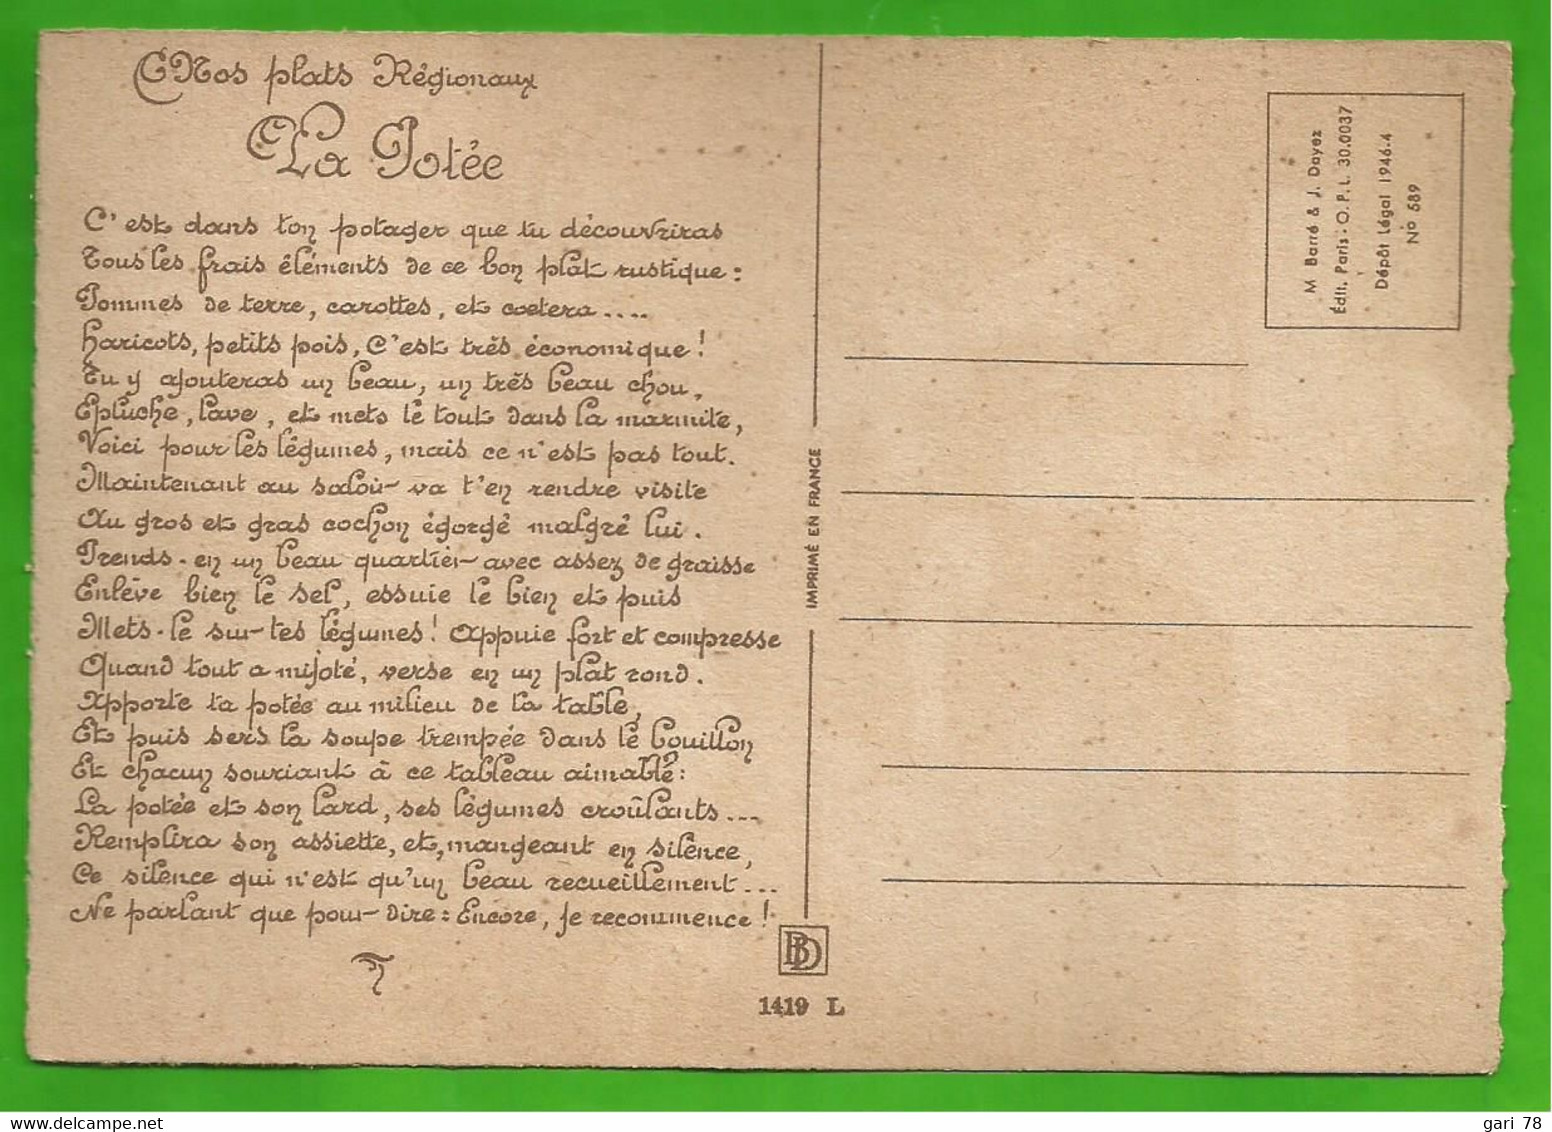 Nos plats Régionaux
La Potée
C'est dans ton potager que tu découvriras
Tous les frais éléments de ce bon plat rustique :
Pommes de terre, carottes, et coetera....
Haricots, petits pois, C'est très économique !
Tu y ajouteras un beau, un très beau chou,
Epluche, lave, et mets le tout dans la marmite,
Voici pour les légumes, mais ce n'est pas tout.
Maintenant au saloir va t'en rendre visite
Au gros et gras cochon égorgé malgré lui.
Prends-en un beau quartier avec assez de graisse
Enlève bien le sel, essuie le bien et puis
Mets-le sur tes légumes ! Appuie fort et compresse
Quand tout a mijoté, verse en un plat rond.
Apporte ta potée au milieu de la table,
Et puis sers la soupe trempée dans le bouillon
Et chacun souriant à ce tableau aimable :
La potée et son lard, ses légumes croûlants...
Remplira son assiette, et, mangeant en silence,
Ce silence qui n'est qu'un beau recueillement...
Ne parlant que pour dire : Encore, je recommence !
BD
1419 L
IMPRIMÉ EN FRANCE
M Barré & J. Dayez
Édit. Paris : O.P.L. 30.0037
Dépôt Légal 1946-4
N° 589
gari 78